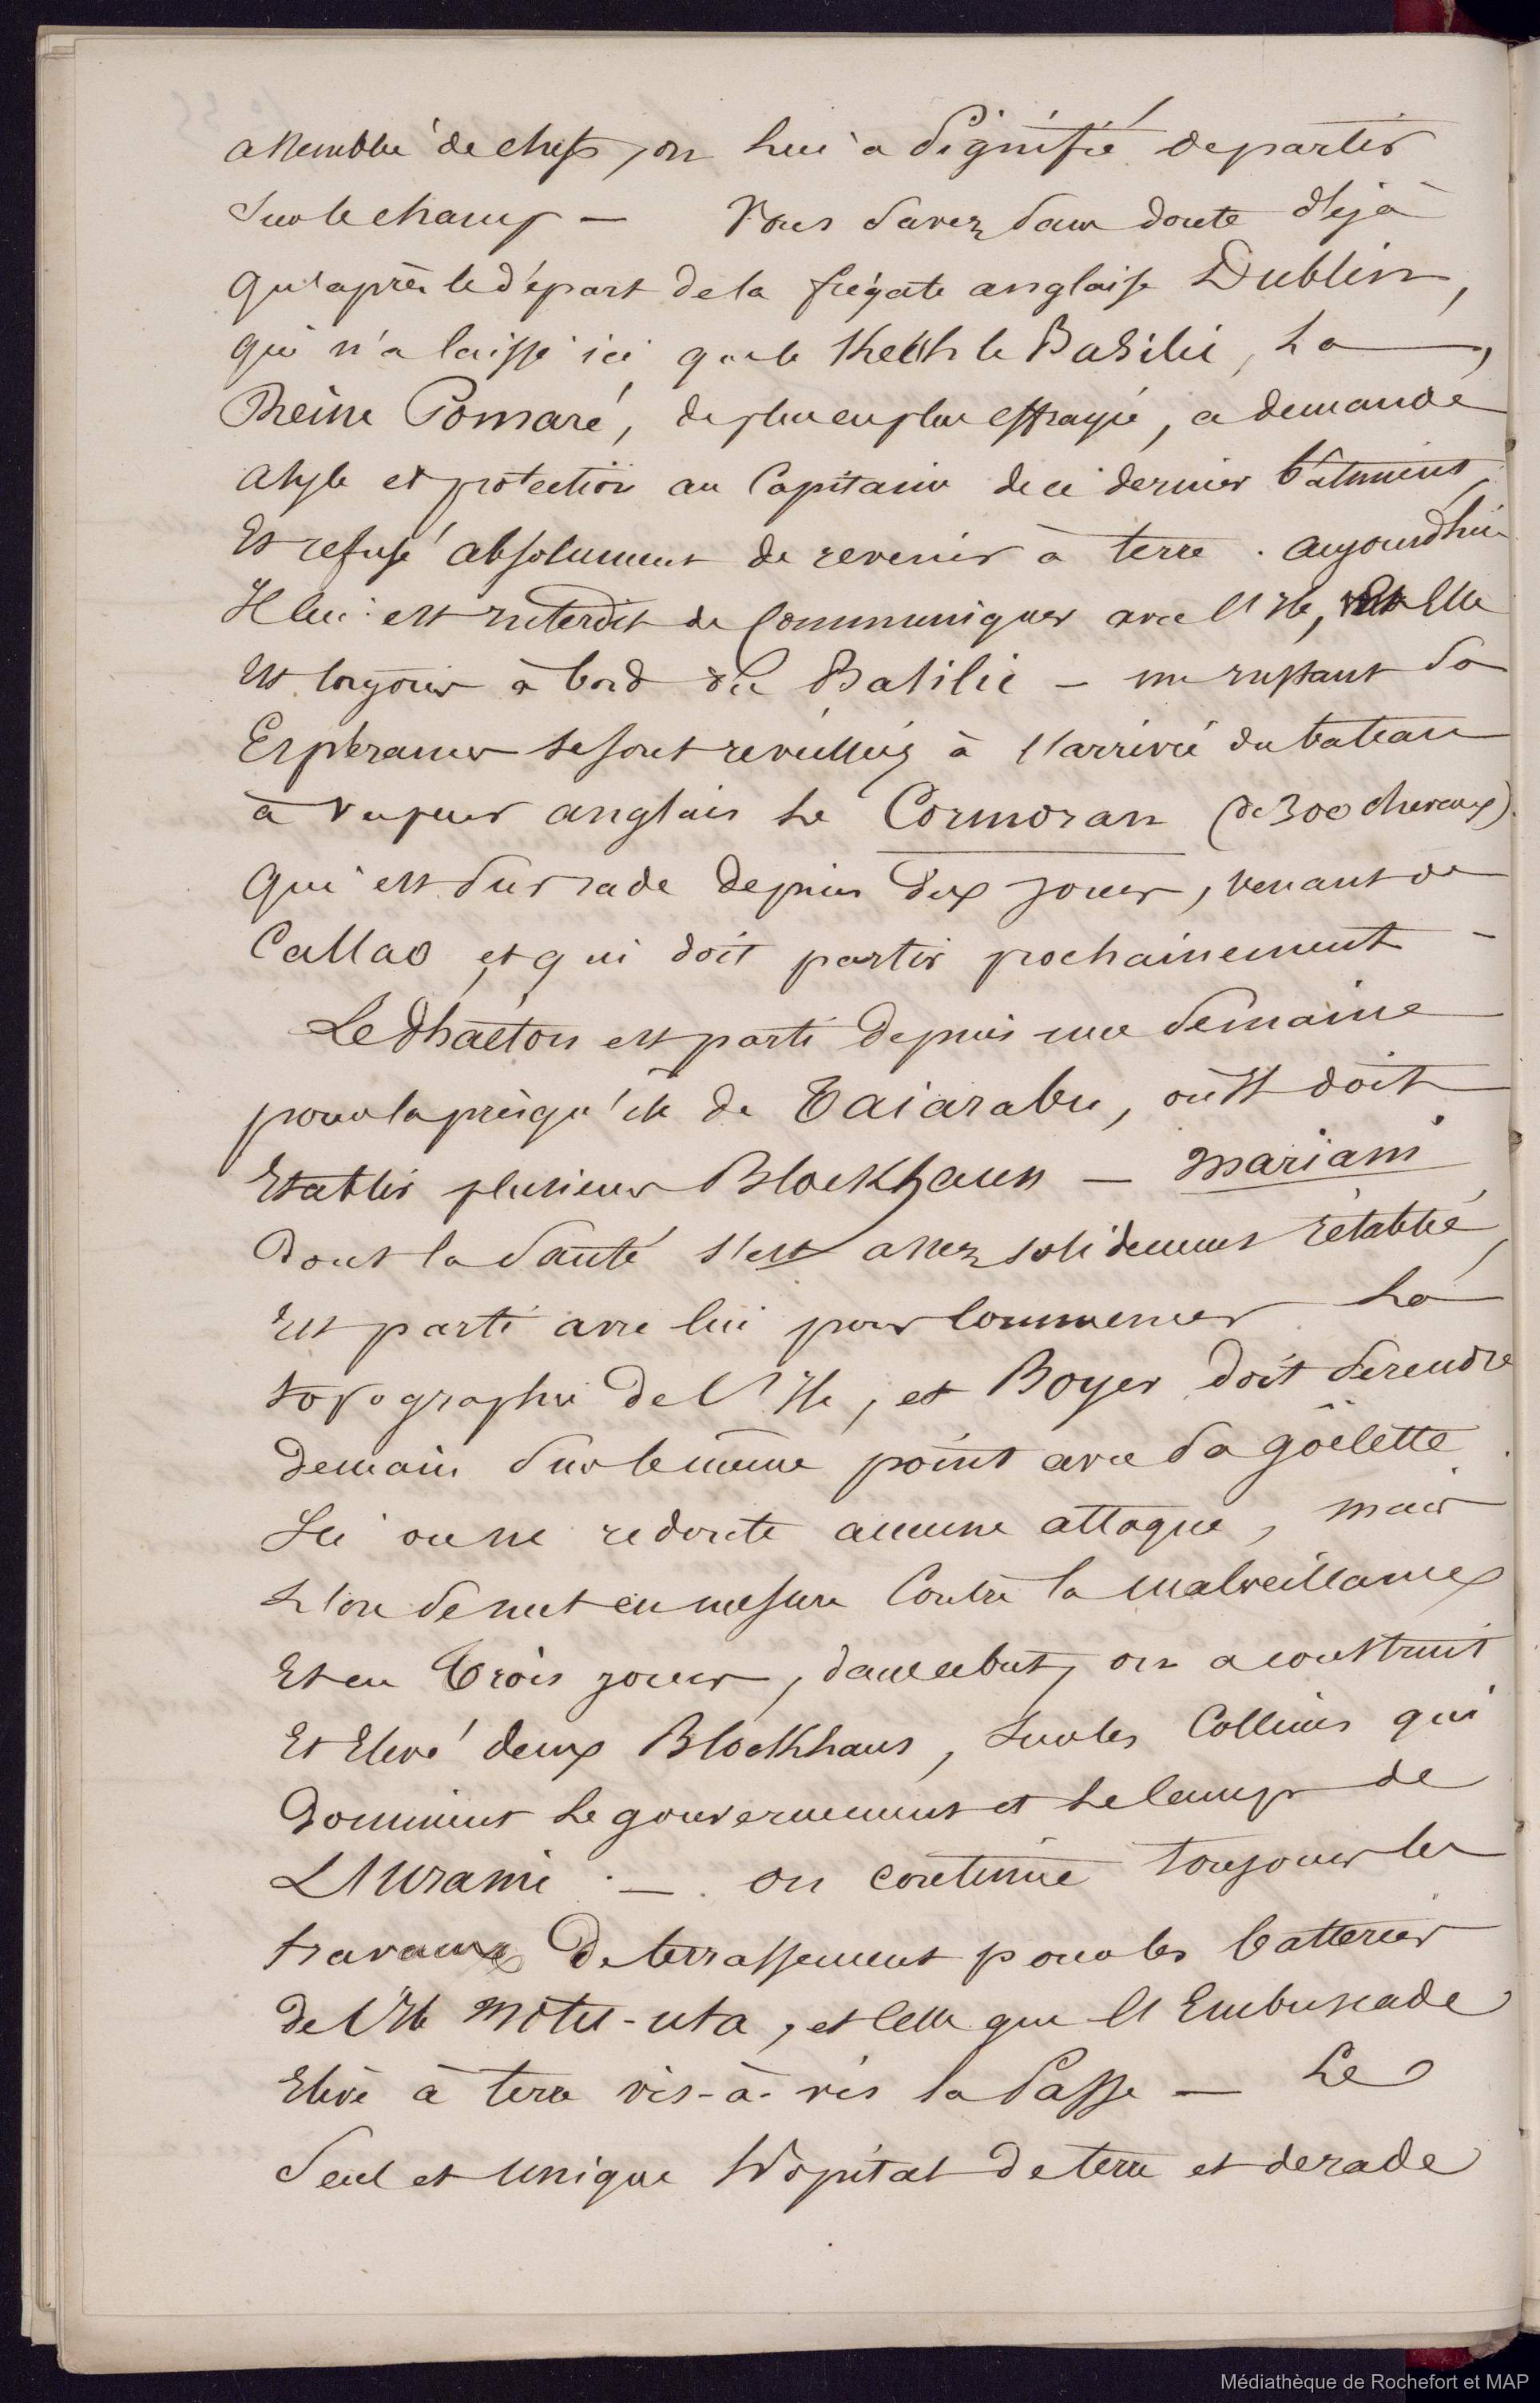 assemblée de chefs, on lui a signifié de partir
sur le champ — Vous savez sans doute déjà
qu'après le départ de la frégate anglaise Dublin,
qui n'a laissé ici que le Ketch le Basilic, La
Reine Pomaré, de plus en plus effrayée, a demandé
asyle et protection au Capitaine de ce dernier bâtiment,
Et refusé absolument de revenir à terre. aujourd'hui
Il lui est interdit de Communiquer avec l'Ile, et Elle
Est toujours à bord du Basilic — un instant Sa
Espérances se sont réveillées à l'arrivée du bateau
à vapeur anglais Le Cormoran (de 300 chevaux).
Qui est sur rade depuis dix jours, venant de
Callao, et qui doit partir prochainement —
Le Phaéton est parti depuis une Semaine
pour la presqu'ile de Taiarabu, où Il doit
Etablir plusieurs Blockhauss — Mariani
dont la Santé s'est assez solidement rétablie,
Est parti avec lui pour Commencer La
topographie De l'Ile, et Boyer doit Se rendre
Demain Sur le même point avec Sa göëlette.
Ici on ne redoute aucune attaque, mais
L'on Se met en mesure Contre la Malveillance
Et en Trois jours, dans ce but, on a construit
Et Elevé deux Blockhaus, Sur les Collines qui
Dominent Le gouvernement et Le Camp de
L'Uranie. — . On continue toujours les
travaux De terrassement pour les batteries
de l'Ile Motu-uta, et Celle que l'Embuscade
Elève à terre vis-à-vis la Passe — Le
Seul et Unique Hôpital De terre et de rade
Médiathèque de Rochefort et MAP